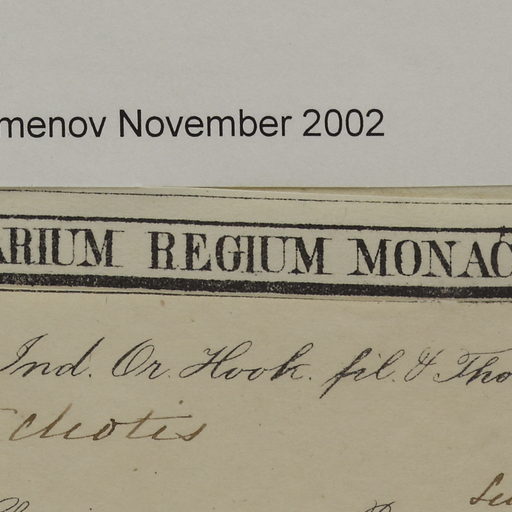 menov November 2002
ARIUM REGIUM MONAC
Ind. Or. Hook. fil. & Tho